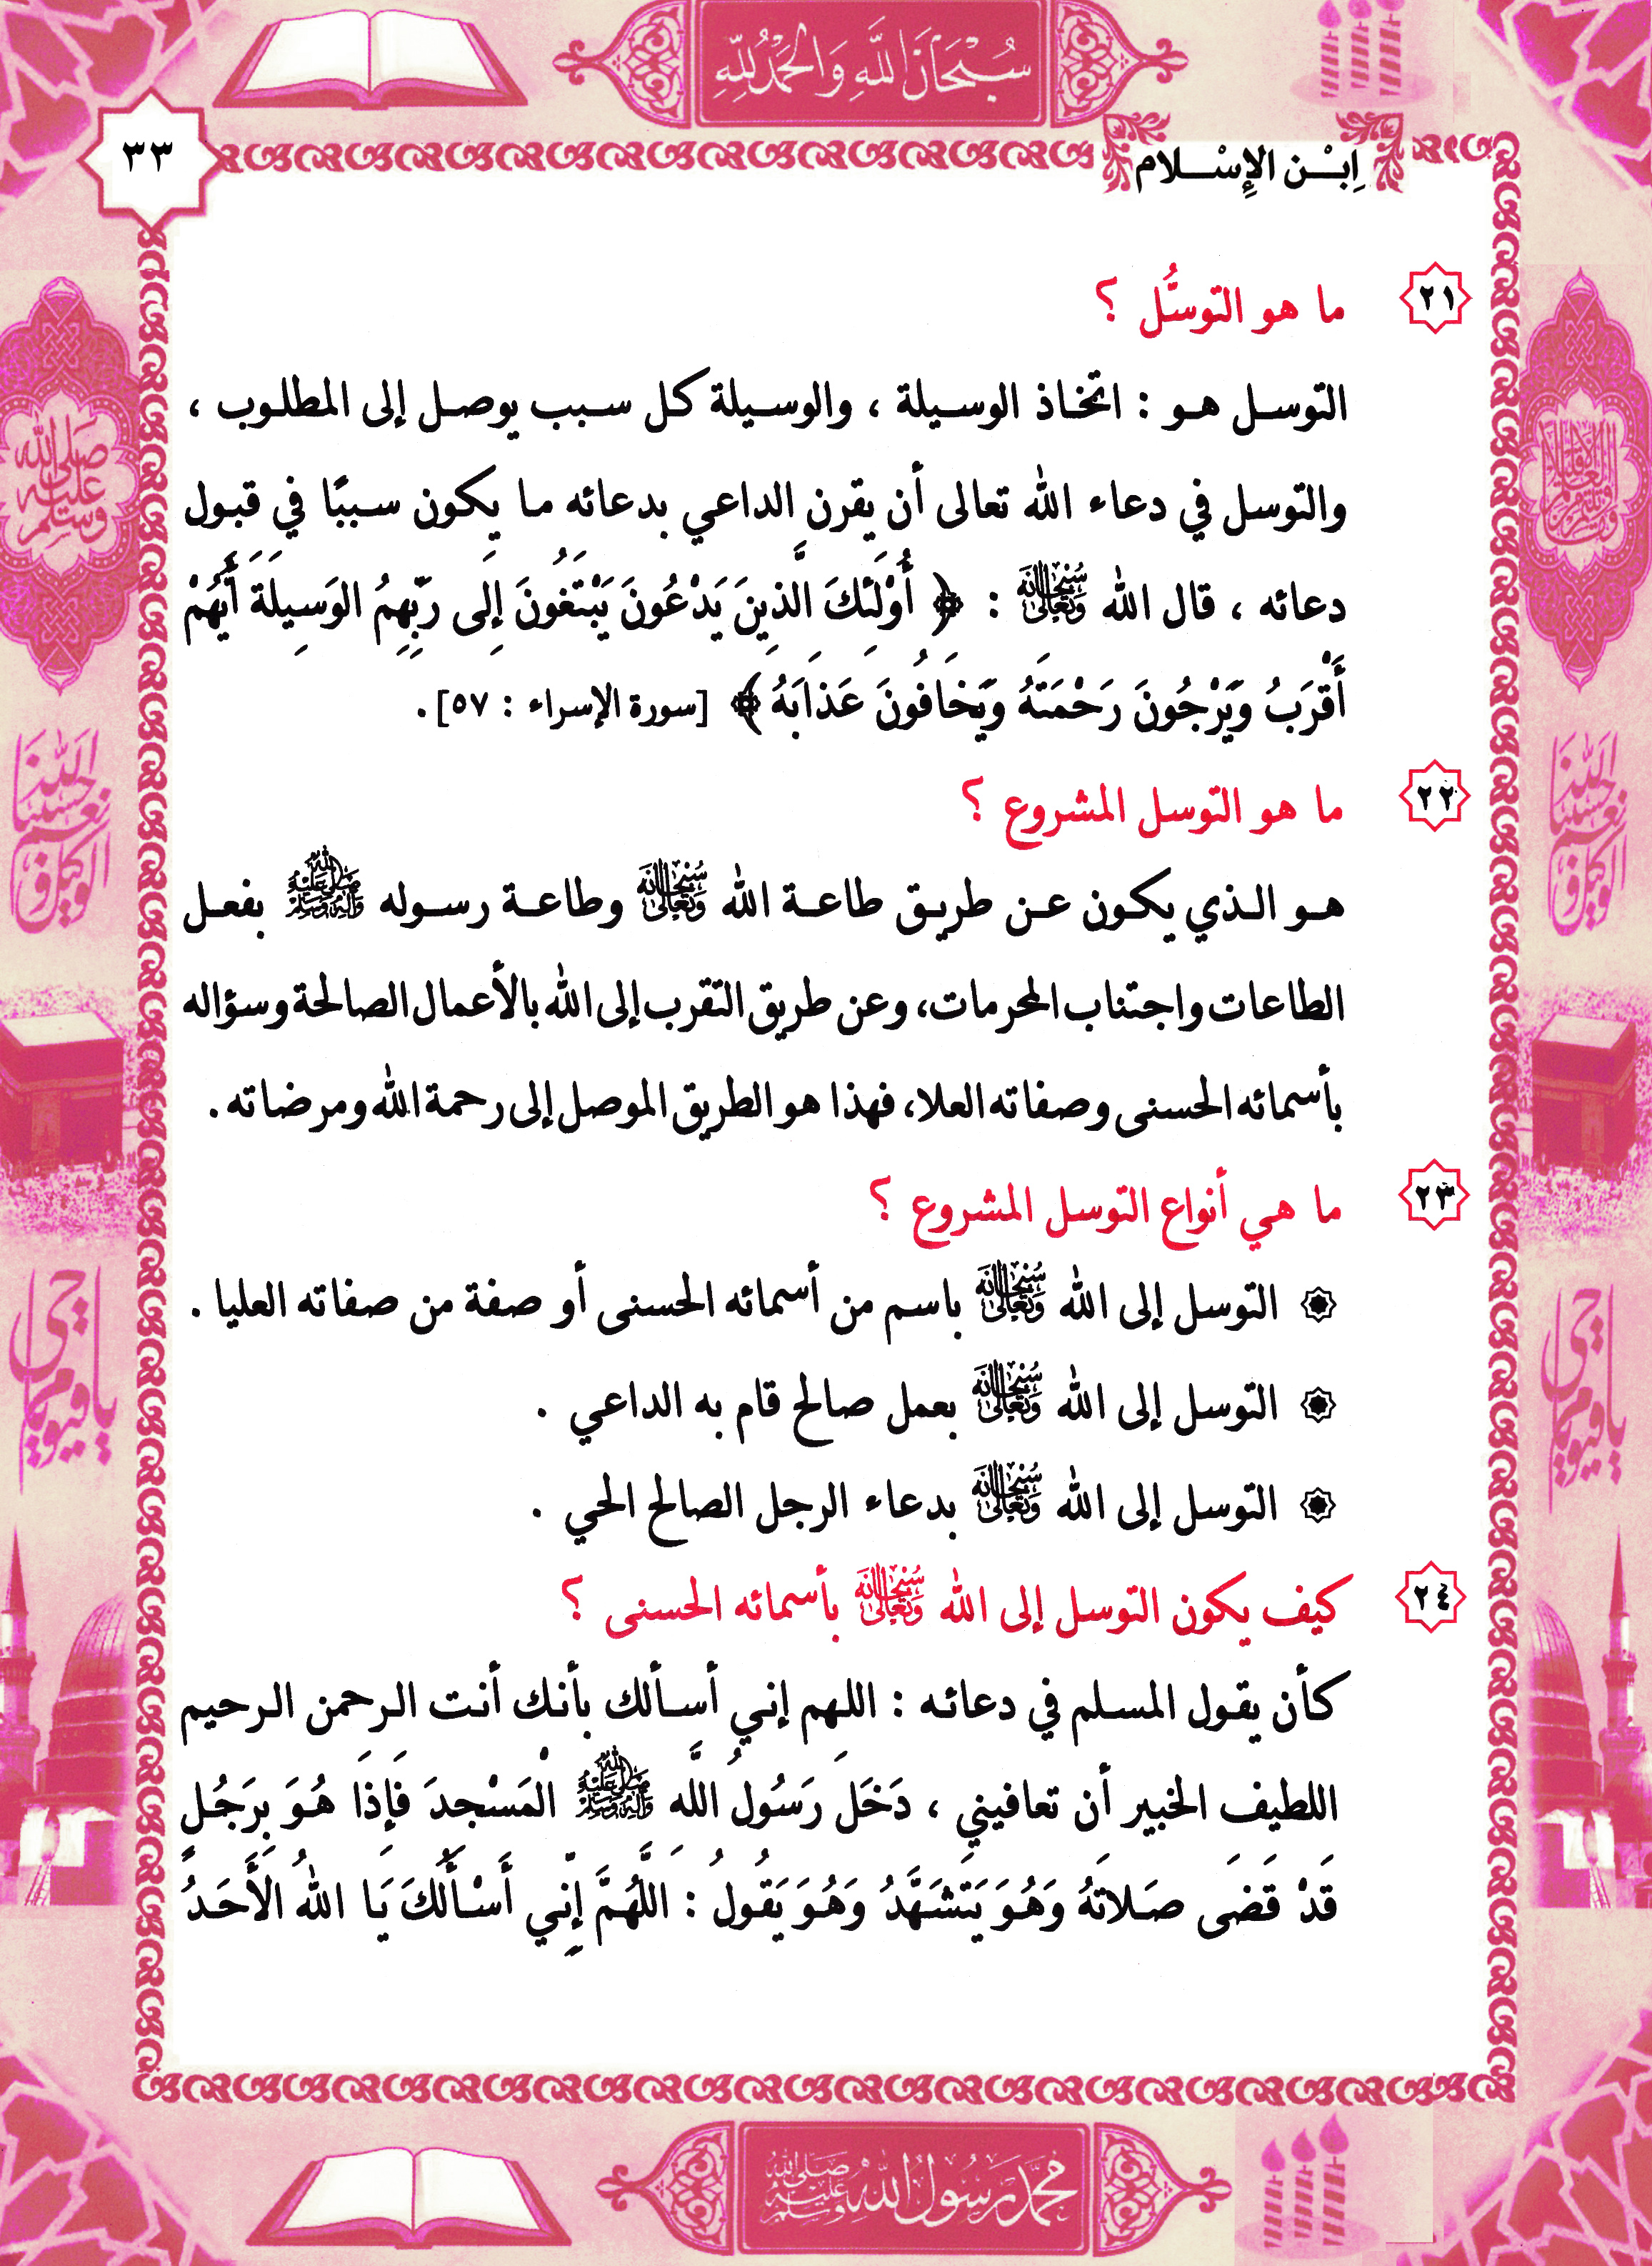 سُبْحَانَ اللَّهِ وَالحَمْدُ لِلَّهِ
٣٣
اِبْـن الإِسْـلام
٢١ ما هو التوسُّل ؟
التوسـل هـو : اتخـاذ الوسـيلة ، والوسـيلة كـل سـبب يوصـل إلى المطلـوب ،
والتوسل في دعاء الله تعالى أن يقرن الداعي بدعائه ما يكون سببًا في قبول
دعائه ، قال الله سُبْحَانَهُ وَتَعَالَى : ﴿ أُوْلَئِكَ الَّذِينَ يَدْعُونَ يَبْتَغُونَ إِلَى رَبِّهِمُ الوَسِيلَةَ أَيُّهُمْ
أَقْرَبُ وَيَرْجُونَ رَحْمَتَهُ وَيَخَافُونَ عَذَابَهُ ﴾ [سورة الإسراء : ٥٧] .
٢٢ ما هو التوسل المشروع ؟
هـو الـذي يكـون عـن طريـق طاعـة الله سُبْحَانَهُ وَتَعَالَى وطاعـة رسـوله ﷺ بفعـل
الطاعات واجتناب المحرمات، وعن طريق التقرب إلى الله بالأعمال الصالحة وسؤاله
بأسمائه الحسنى وصفاته العلا، فهذا هو الطريق الموصل إلى رحمة الله ومرضاته .
٢٣ ما هي أنواع التوسل المشروع ؟
التوسل إلى الله سُبْحَانَهُ وَتَعَالَى باسم من أسمائه الحسنى أو صفة من صفاته العليا .
التوسل إلى الله سُبْحَانَهُ وَتَعَالَى بعمل صالح قام به الداعي .
التوسل إلى الله سُبْحَانَهُ وَتَعَالَى بدعاء الرجل الصالح الحي .
٢٤ كيف يكون التوسل إلى الله سُبْحَانَهُ وَتَعَالَى بأسمائه الحسنى ؟
كأن يقول المسلم في دعائه : اللهم إني أسألك بأنك أنت الرحمن الرحيم
اللطيف الخبير أن تعافيني ، دَخَلَ رَسُولُ اللَّهِ ﷺ الْمَسْجِدَ فَإِذَا هُوَ بِرَجُلٍ
قَدْ قَضَى صَلاتَهُ وَهُوَ يَتَشَهَّدُ وَهُوَ يَقُولُ : اللَّهُمَّ إِنِّي أَسْأَلُكَ يَا اللهُ الأَحَدُ
صلى الله عليه وسلم
حسبنا الله ونعم الوكيل
حسبنا الله ونعم الوكيل
يا حي يا قيوم
يا حي يا قيوم
محمد رسول الله صلى الله عليه وسلم